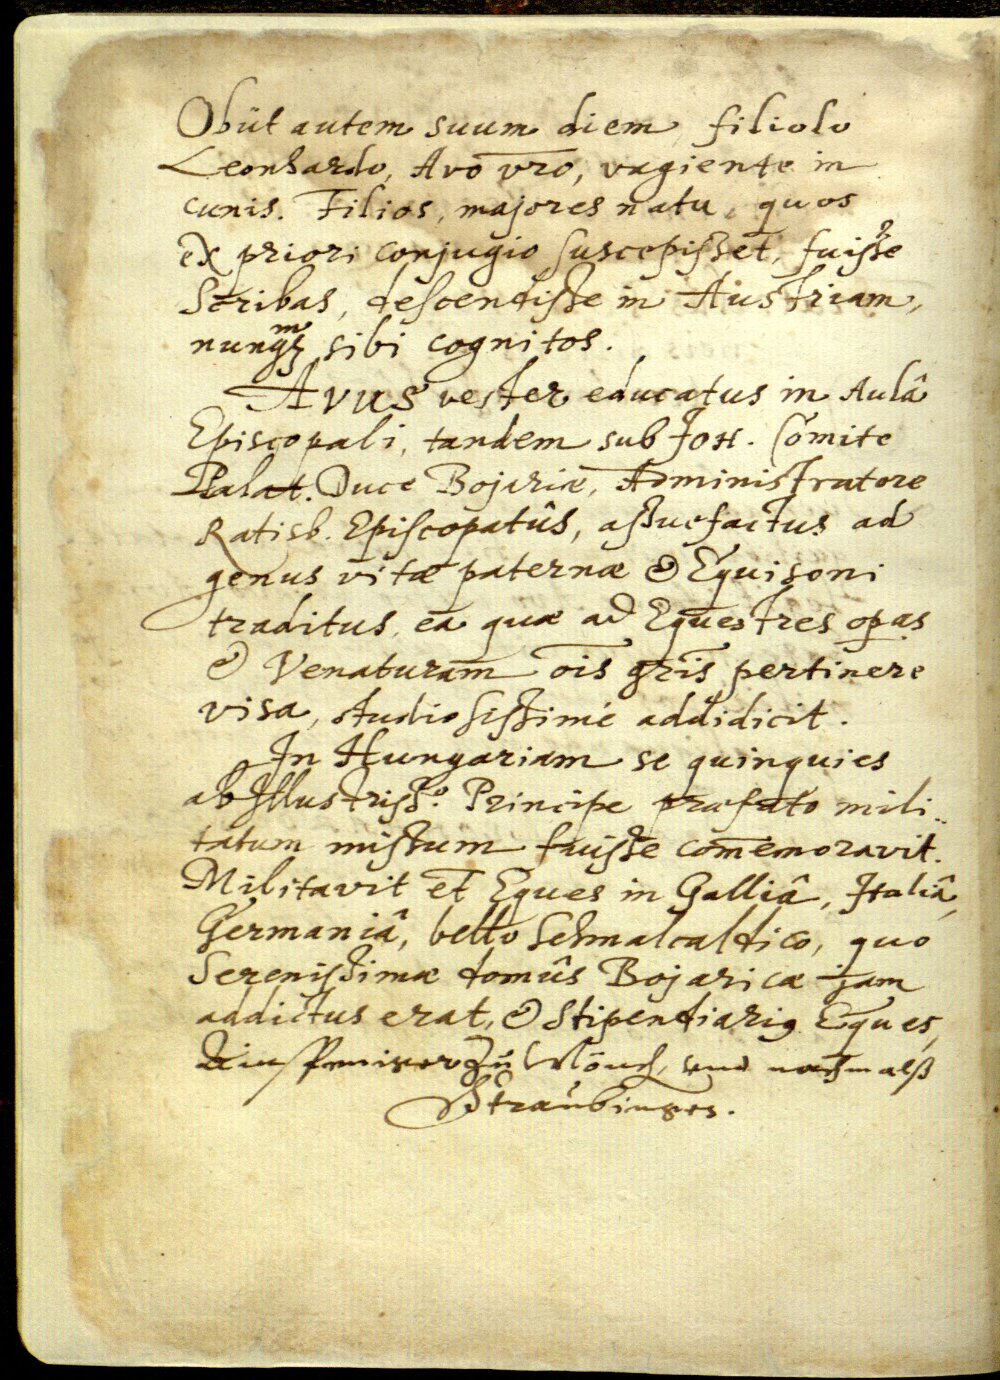 Obiit autem suum diem, filiolo
Leonhardo, Avo vr̄o, vagiente in
cunis. Filios, majores natu, quos
ex priori conjugio suscepisset, fuisse
Scribas, descendisse in Austriam,
nunqm̄ sibi cognitos.
Avus vester educatus in Aulâ
Episcopali, tandem sub Joh. Comite
Palat. Duce Bojariæ, Administratore
Ratisb. Episcopatûs, assuefactus ad
genus vitæ paternæ & Equisoni
traditus, ea quæ ad Equestres opas
& Venaturam ōis gr̄is pertinere
visa, studiosissimè addidicit.
In Hungariam se quinquies
ab Illustriss.o Principe præfato mili-
tatum missum fuisse com̄emoravit.
Militavit et Eques in Galliâ, Italiâ,
Germaniâ, bello Schmalcaldico, quo
Serenissimæ domûs Bojaricæ jam
addictus erat, & Stipendiariq Eques,
Ainspeniger zu und nachmalß
Straubingen.